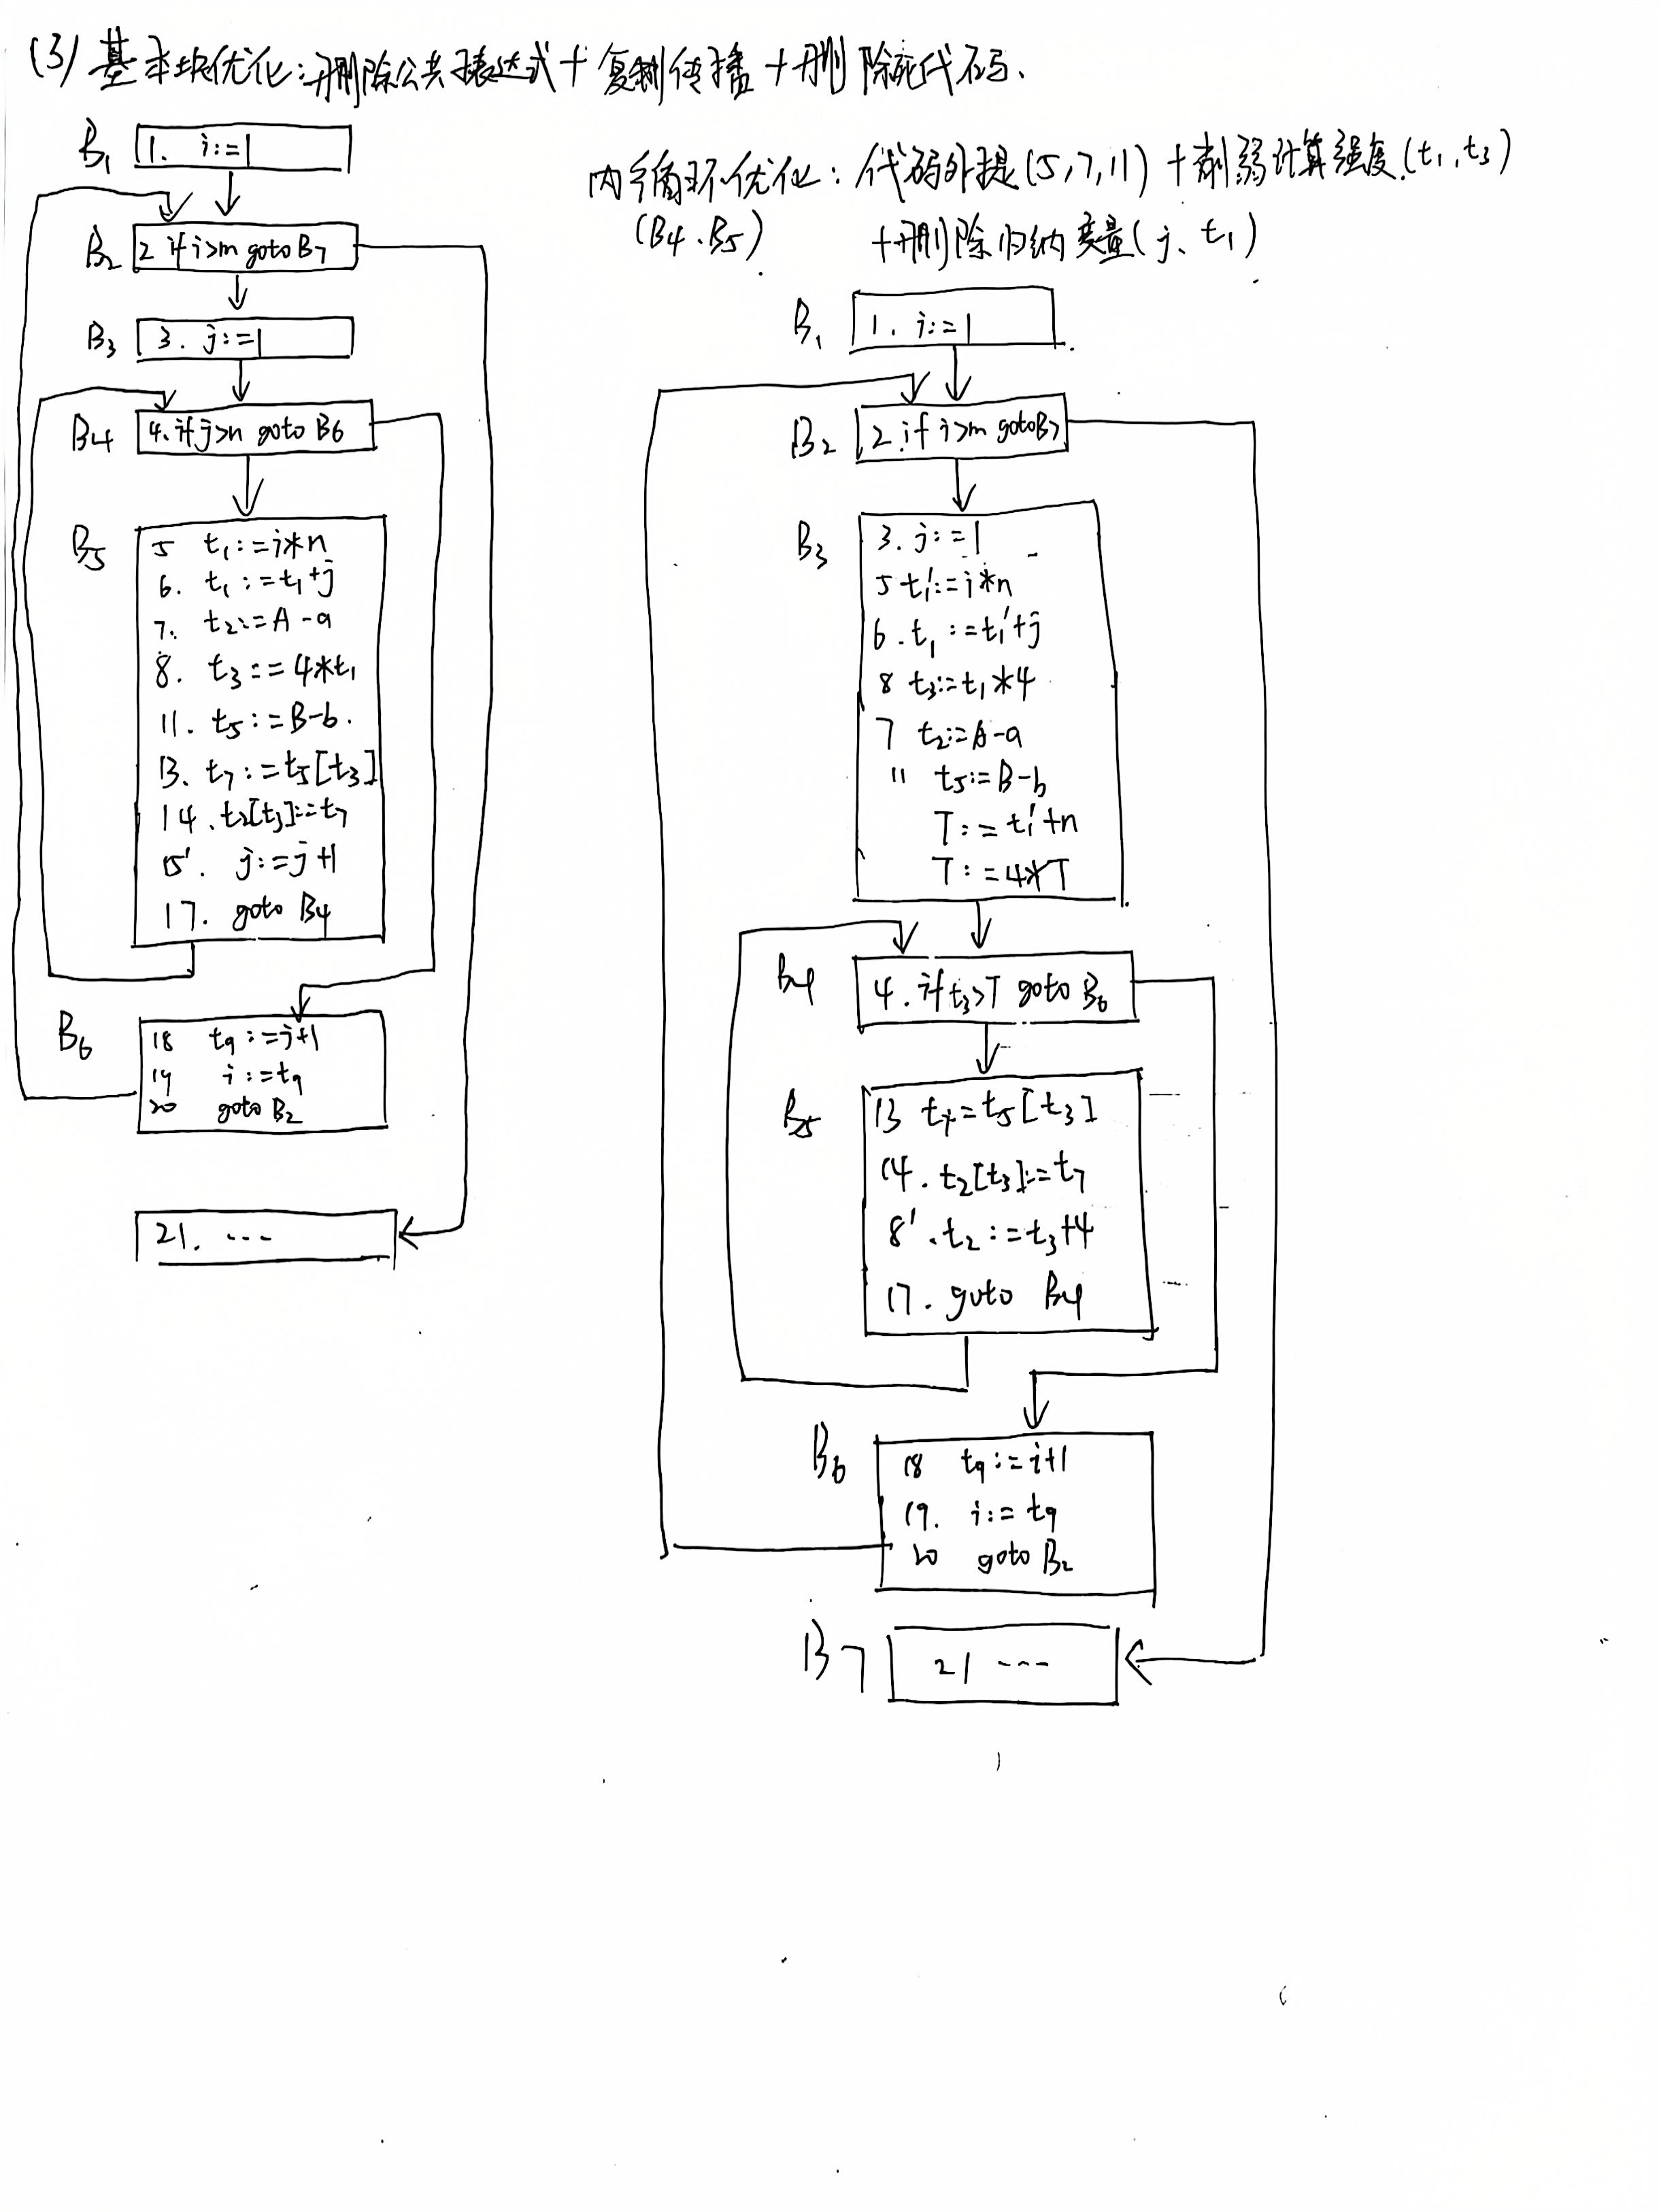 (3) 基本块优化:删除公共表达式+复制传播+删除死代码.
B₁
1. i:=1
B₂
2 if i>m goto B₇
B₃
3. j:=1
B₄
4. if j>n goto B₆
B₅
5 t₁:=i*n
6. t₁:=t₁+j
7. t₂:=A-a
8. t₃:=4*t₁
11. t₅:=B-b.
13. t₇:=t₅[t₃]
14. t₂[t₃]:=t₇
15'. j:=j+1
17. goto B₄
B₆
18 t₉:=j+1
19 i:=t₉
20 goto B₂
21. ...
内循环优化: 代码外提(5,7,11)+削弱计算强度.(t₁,t₃)
(B₄.B₅) +删除归纳变量(j、t₁)
B₁
1. i:=1
B₂
2. if i>m goto B₇
B₃
3. j:=1
5 t₁':=i*n
6. t₁:=t₁'+j
8 t₃:=t₁*4
7 t₂:=A-a
11 t₅:=B-b
T:=t₁'+n
T:=4*T
B₄
4. if t₃>T goto B₆
B₅
13 t₇=t₅[t₃]
14. t₂[t₃]:=t₇
8'. t₂:=t₃+4
17. goto B₄
B₆
18 t₉:=i+1
19. i:=t₉
20 goto B₂
B₇
21 ---